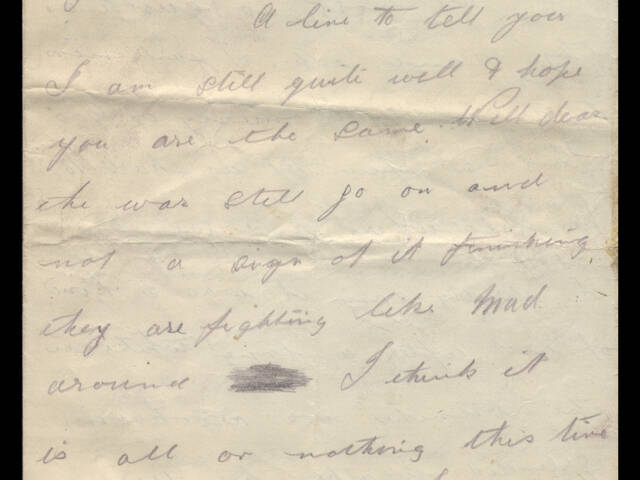 A line to tell you
I am still quite well & hope
you are the same. Well dear
the war still go on and
not a sign of it finishing
they are fighting like mad
around I think it
is all or nothing this time